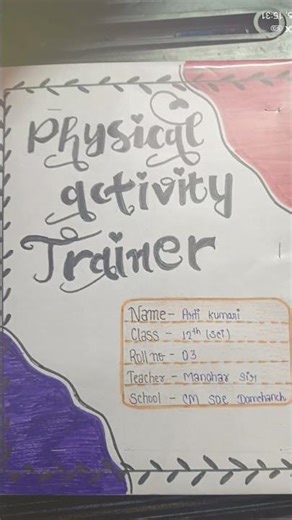 Physical
activity
Trainer
Name - Arti Kumari
Class - 12th (sci)
Roll no - 03
Teacher - Manohar Sir
School - CM SOE Domchanch